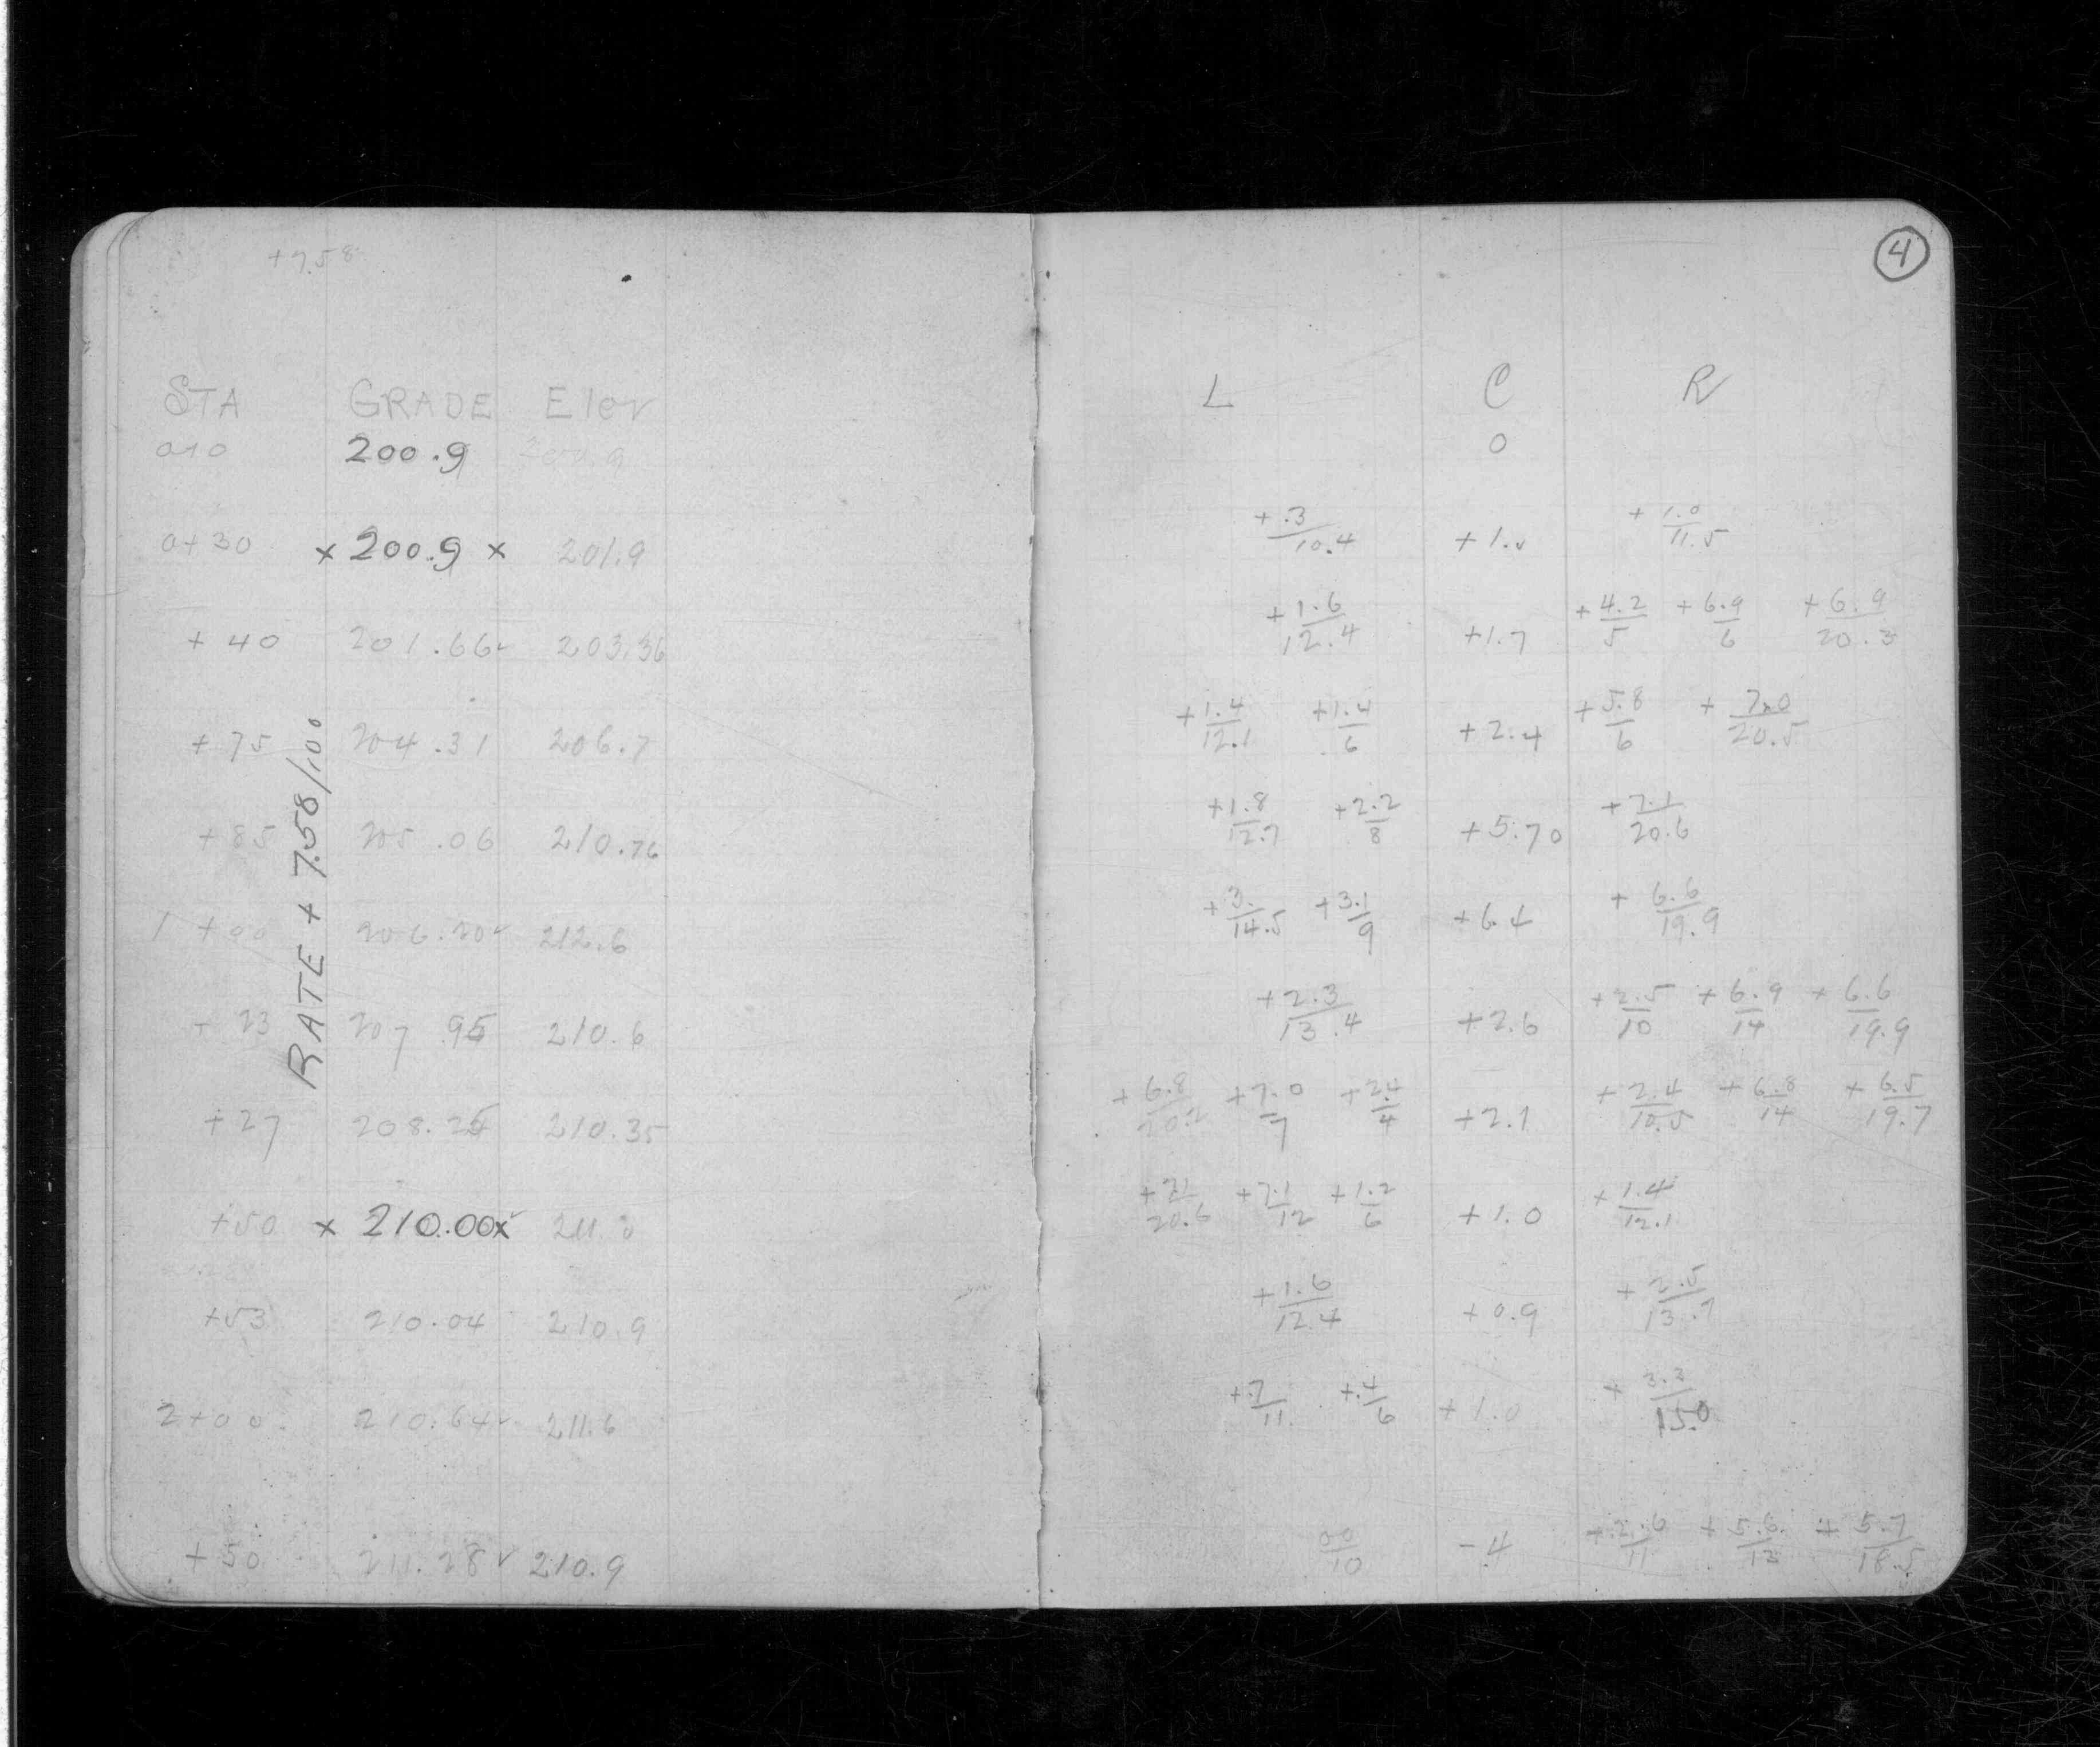 +7.58
4
STA GRADE Elev L C R
0+0 200.9 200.9 0
0+30 x 200.9 x 201.9 +.3/10.4 +1.0 +1.0/11.5
+40 201.66✓ 203.36 +1.6/12.4 +1.7 +4.2/5 +6.9/6 +6.9/20.3
+75 204.31 206.7 +1.4/12.1 +1.4/6 +2.4 +5.8/6 +7.0/20.5
+85 205.06 210.76 +1.8/12.7 +2.2/8 +5.70 +7.1/20.6
1+00 206.20✓ 212.6 +3./14.5 +3.1/9 +6.4 +6.6/19.9
+23 207.95 210.6 +2.3/13.4 +2.6 +2.5/10 +6.9/14 +6.6/19.9
+27 208.25 210.35 +6.8/20.2 +7.0/7 +2.4/4 +2.1 +2.4/10.5 +6.8/14 +6.5/19.7
+50 x 210.00x✓ 211.0 +7.1/20.6 +7.1/12 +1.2/6 +1.0 +1.4/12.1
+53 210.04 210.9 +1.6/12.4 +0.9 +2.5/13.7
2+00 210.64✓ 211.6 +.7/11 +.4/6 +1.0 +3.3/15.0
+50 211.28✓ 210.9 0.0/10 -.4 +2.6/11 +5.6/12 +5.7/18.5
RATE + 7.58/100